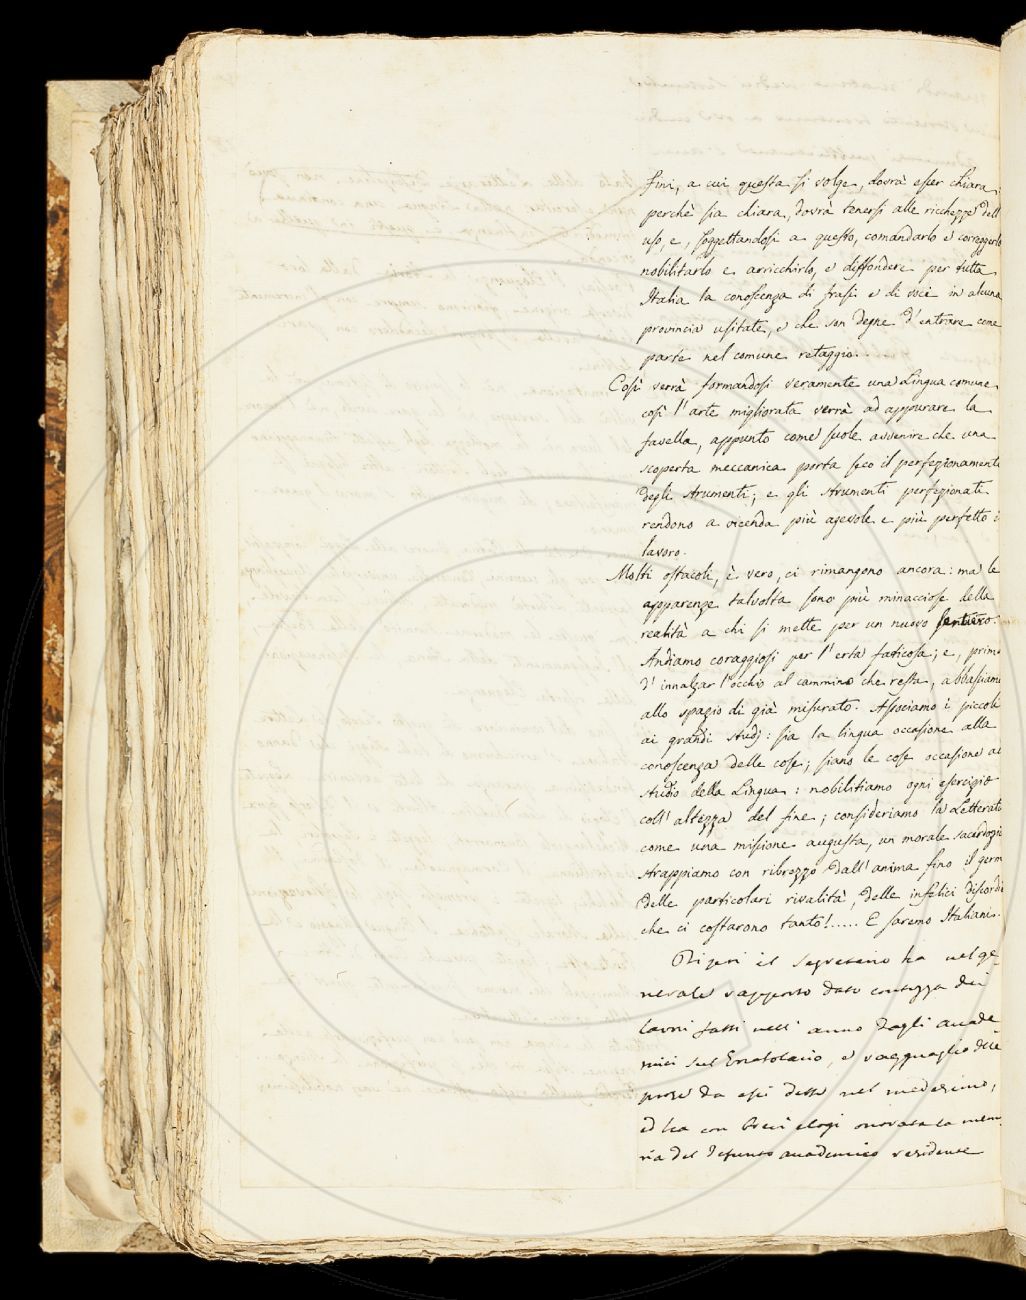 fini, a cui questa si volge, dovrà esser chiara,
perchè sia chiara, dovrà tenersi alle ricchezze dell
uso, e, soggettandosi a questo, comandarlo e correggerlo
nobilitarlo e arricchirlo, e diffondere per tutta
Italia la conoscenza di frasi e di voci in alcuna
provincia usitate, e che son degne d'entrare come
parte nel comune retaggio.
Così verrà formandosi veramente una Lingua comune,
così l'arte migliorata verrà ad appurare la
favella, appunto come suole avvenire che una
scoperta meccanica porta seco il perfezionamento
degli strumenti; e gli strumenti perfezionati
rendono a vicenda più agevole e più perfetto i
lavoro.
Molti ostacoli, è vero, ci rimangono ancora: ma le
apparenze talvolta sono più minacciose della
realità a chi si mette per un nuovo sentiero.
Andiamo coraggiosi per l'erta faticosa; e, prima
d'innalzar l'occhio al cammino che resta, abbassiamo
allo spazio di già misurato. Associamo i piccoli
ai grandi studj: sia la lingua occasione alla
conoscenza delle cose; siano le cose occasione al
studio della Lingua: nobilitiamo ogni esercizio
coll'altezza del fine; consideriamo la Letterat
come una missione augusta, un morale sacerdozio
strappiamo con ribrezzo dall'anima fino il germ
delle particolari rivalità, delle infelici discordi
che ci costarono tanto!..... E saremo Italiani.
il Segretario ha nel ge
nerale rapporto dato contezza dei
lavori fatti nell'anno dagli accade
mici sul e ragguaglio delle
prose da essi dette nel medesimo,
ed ha con brevi elogi onorata la mem
ria del defunto accademico residente